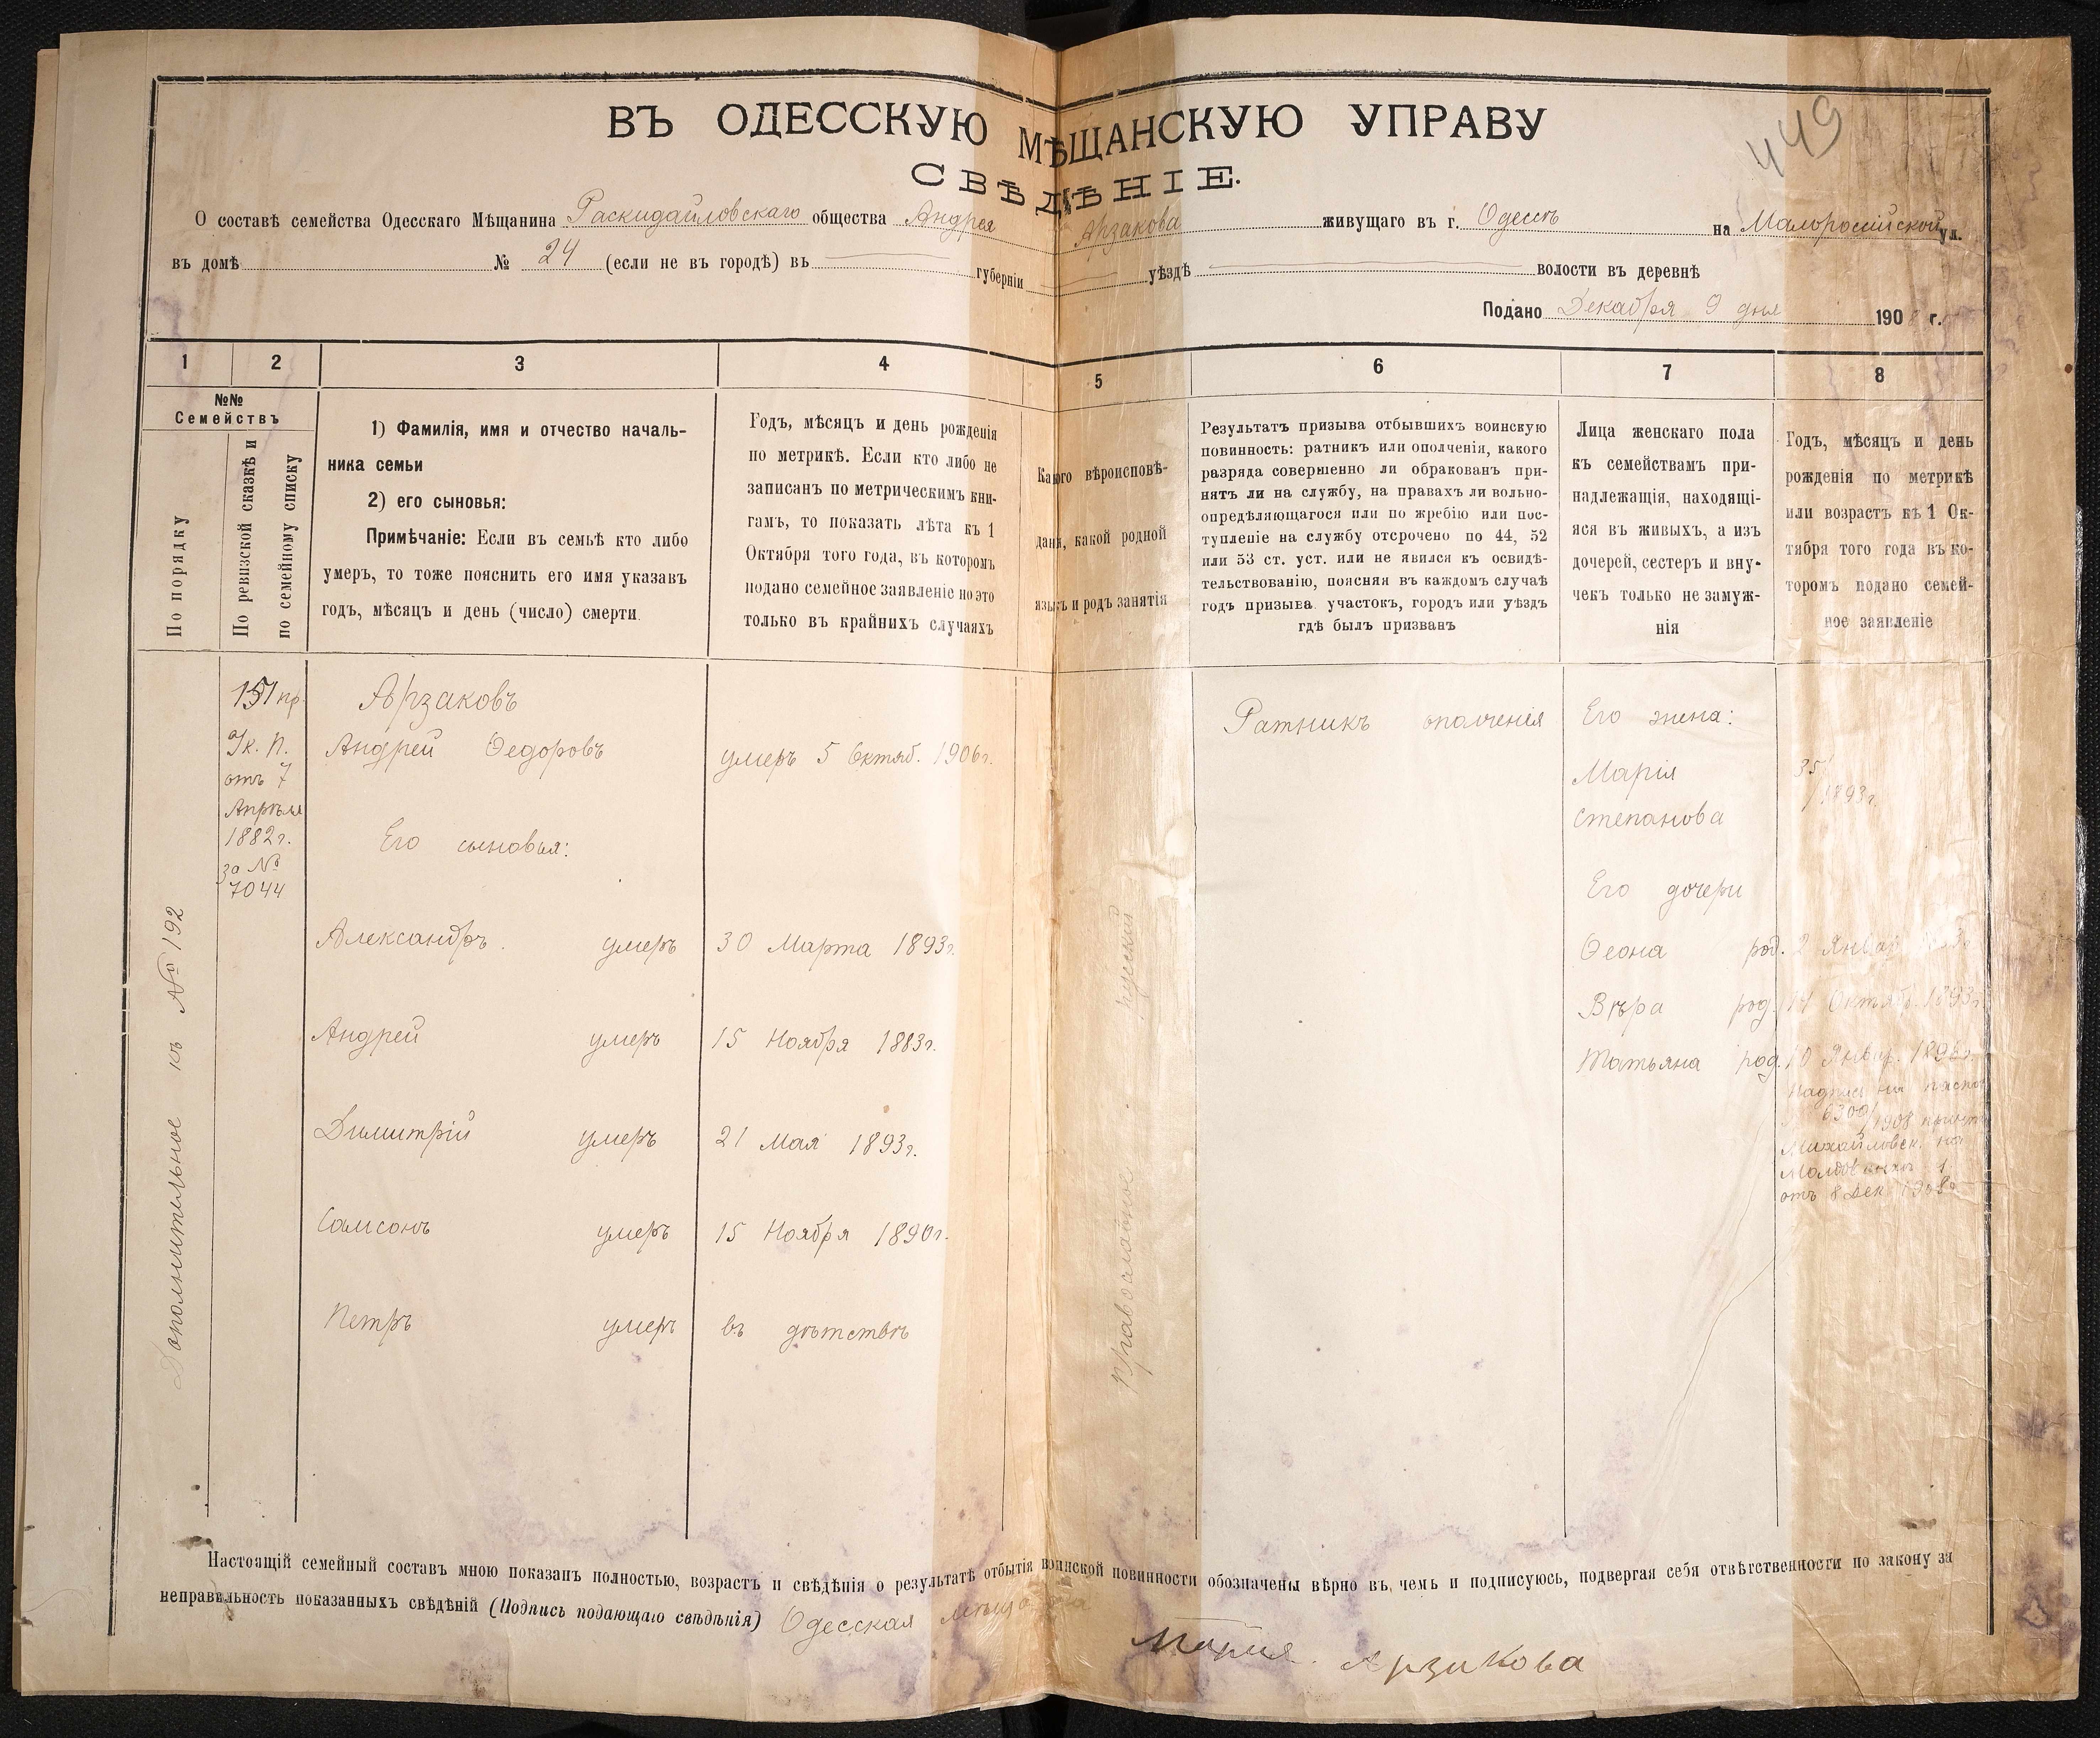 449
ВЪ ОДЕССКУЮ МѢЩАНСКУЮ УПРАВУ
СВѢДѢНІЕ.
О составѣ семейства Одесскаго Мѣщанина Раскидайловскаго общества Андрея Арзакова живущаго въ г. Одессѣ на Малороссійской ул.
въ домѣ № 24 (если не въ городѣ) въ губерніи уѣздѣ волости въ деревнѣ
Подано Декабря 9 дня 1908 г.
1 2 3 4 5 6 7 8
№№
Семействъ
По порядку
По ревизской сказкѣ и
по семейному списку
1) Фамилія, имя и отчество началь-
ника семьи
2) его сыновья:
Примѣчаніе: Если въ семьѣ кто либо
умеръ, то тоже пояснить его имя указавъ
годъ, мѣсяцъ и день (число) смерти.
Годъ, мѣсяцъ и день рожденія
по метрикѣ. Если кто либо не
записанъ по метрическимъ кни-
гамъ, то показать лѣта къ 1
Октября того года, въ которомъ
подано семейное заявленіе но это
только въ крайнихъ случаяхъ
Какого вѣроисповѣ-
данія, какой родной
языкъ и родъ занятія
Результатъ призыва отбывшихъ воинскую
повинность: ратникъ или ополченія, какого
разряда совершенно ли обракованъ при-
нятъ ли на службу, на правахъ ли вольно-
опредѣляющагося или по жребію или пос-
тупленіе на службу отсрочено по 44, 52
или 53 ст. уст. или не явился къ освидѣ-
тельствованію, поясняя въ каждомъ случаѣ
годъ призыва участокъ, городъ или уѣздъ
гдѣ былъ призванъ
Лица женскаго пола
къ семействамъ при-
надлежащія, находящі-
яся въ живыхъ, а изъ
дочерей, сестеръ и вну-
чекъ только не замуж-
нія
Годъ, мѣсяцъ и день
рожденія по метрикѣ
или возрастъ къ 1 Ок-
тября того года въ ко-
торомъ подано семей-
ное заявленіе
Дополнительное къ № 192
151 пр.
Ук. П.
отъ 7
Апрѣля
1882г.
за №
7044
Арзаковъ
Андрей Ѳедоровъ умеръ 5 Октяб. 1906г.
Его сыновья:
Александръ умеръ 30 Марта 1893г.
Андрей умеръ 15 Ноября 1883г.
Димитрій умеръ 21 Мая 1893г.
Самсонъ умеръ 15 Ноября 1890г.
Петръ умеръ въ дѣтствѣ
Православное русскій
Ратникъ ополченія
Его жена:
Марія 35/1893г.
Степанова
Его дочери
Ѳеона род. 2 Январ
Вѣра род. 14 Октябр. 1893г.
Татьяна род. 10 Январ. 1896г.
Надпись на паспор
6300/1908
Михайловск. на
отъ 8 Дек 1908г.
Настоящій семейный составъ мною показанъ полностью, возрастъ и свѣдѣнія о результатѣ отбытія воинской повинности обозначены вѣрно въ чемъ и подписуюсь, подвергая себя отвѣтственности по закону за
неправильность показанныхъ свѣдѣній (Подпись подающаго свѣдѣнія) Одесская мѣщанка
Мария Арзакова